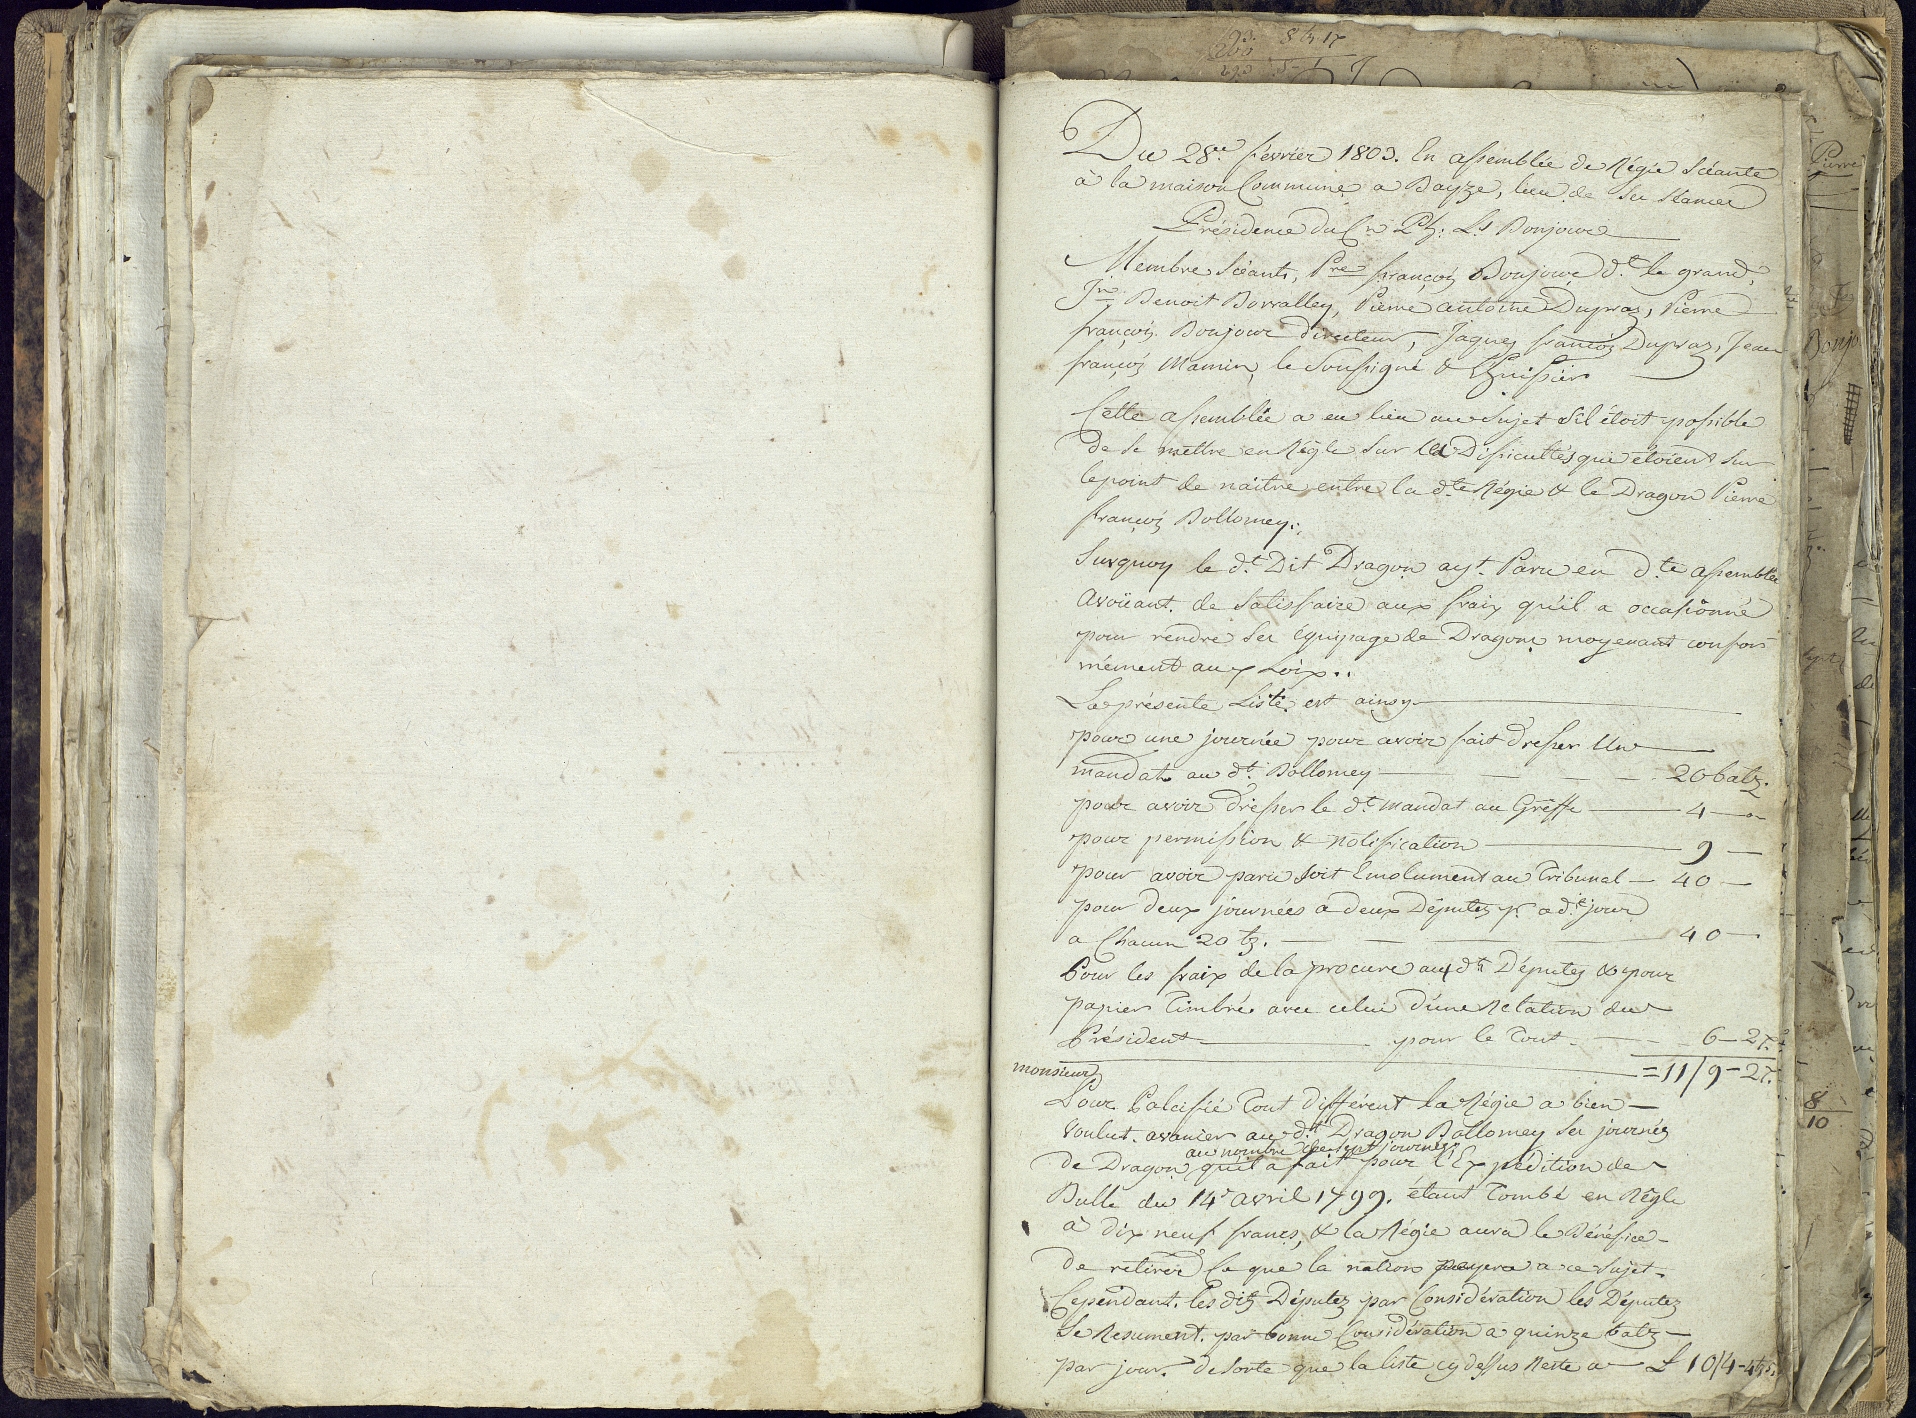 Du 28.e février 1803. En assemblée de Régie Scéante
à la maison Commune a Bayze, lieu de ses Séances
Présidence du Cn. Ph: Ls Bonjour
Membre Scéants, Pre françois Bonjour d.t le grand,
Jn. Benoit Borralley, Pierre antoine Dupraz, Pierre
françois Bonjour directeur, Jaques françois Dupraz, Jean
françois Mamin, le Soussigné & Lhuissier
Cette assemblée a eu lieu au sujet s'il étoit possible
de se mettre en Règle sur les Dificultés que étoient sur
le point de naitre entre la d.te Régie & le Dragon Pierre
françois Bollomey.
Surquoy le d.t Dit Dragon ay.t Paru en d.te assemblée
Avoüant de Satisfaire aux fraix qu'il a occasionné
pour rendre ses équipage de Dragons moyenant confor
mément aux Loix..
La présente Liste est ainsy
pour une journée pour avoir fait dresser Un
mandat au d.t Bollomey 20 batz.
pour avoir dresser le d.t mandat au Greffe 4
pour permission & notification 9
pour avoir paru soit Emolument au Tribunal 40
pour deux journées a deux Députez p.r a d.t jour
a Chacun 20 bz. 40
Pour les fraix de la procure aux d.ts Députez & pour
papier Timbré avec celui d'une Relation du
Président pour le Tout 6 - 27.
monsieur = 11/9 - 27.
Pour Palcifié Tout différent la Régie a bien
voulut avancer au d.t Dragon Bollomey ses journées
au nombre de sept journées
de Dragon qu'il a fait pour l'Expédition de
Bulle du 14.e avril 1799. étant Tombé en Règle
à dix neuf francs, & la Régie aura le Bénéfice
de retirer ce que la nation payera a ce sujet.
Cependant les dits Députez par Considération les Députez
Se Resument par bonne Considération a quinze batz
par jour. de sorte que la liste cy dessus Reste a £ 10/4 -
Pierre
Bonjo
8
10